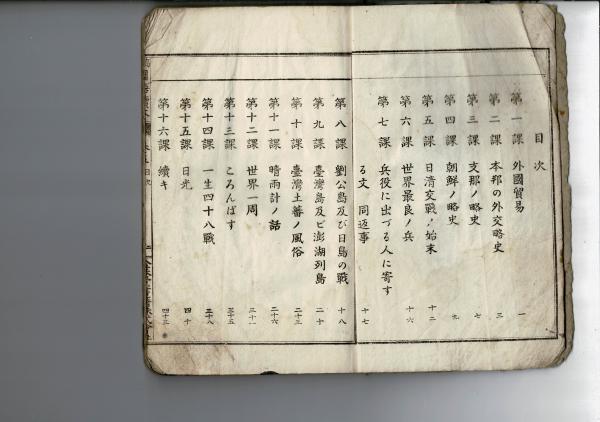 目次
第一課 外國貿易 一
第二課 本邦の外交略史 三
第三課 支那ノ略史 七
第四課 朝鮮ノ略史 九
第五課 日清交戰ノ始末 十二
第六課 世界最良ノ兵 十六
第七課 兵役に出づる人に寄す
る文 同返事 十七
第八課 劉公島及び日島の戰 十八
第九課 臺灣島及ビ澎湖列島 二十
第十課 臺灣土蕃ノ風俗 二十三
第十一課 晴雨計ノ話 二十六
第十二課 世界一周 三十一
第十三課 ころんばす 三十五
第十四課 一生四十八戰 三十八
第十五課 日光 四十
第十六課 續キ 四十三